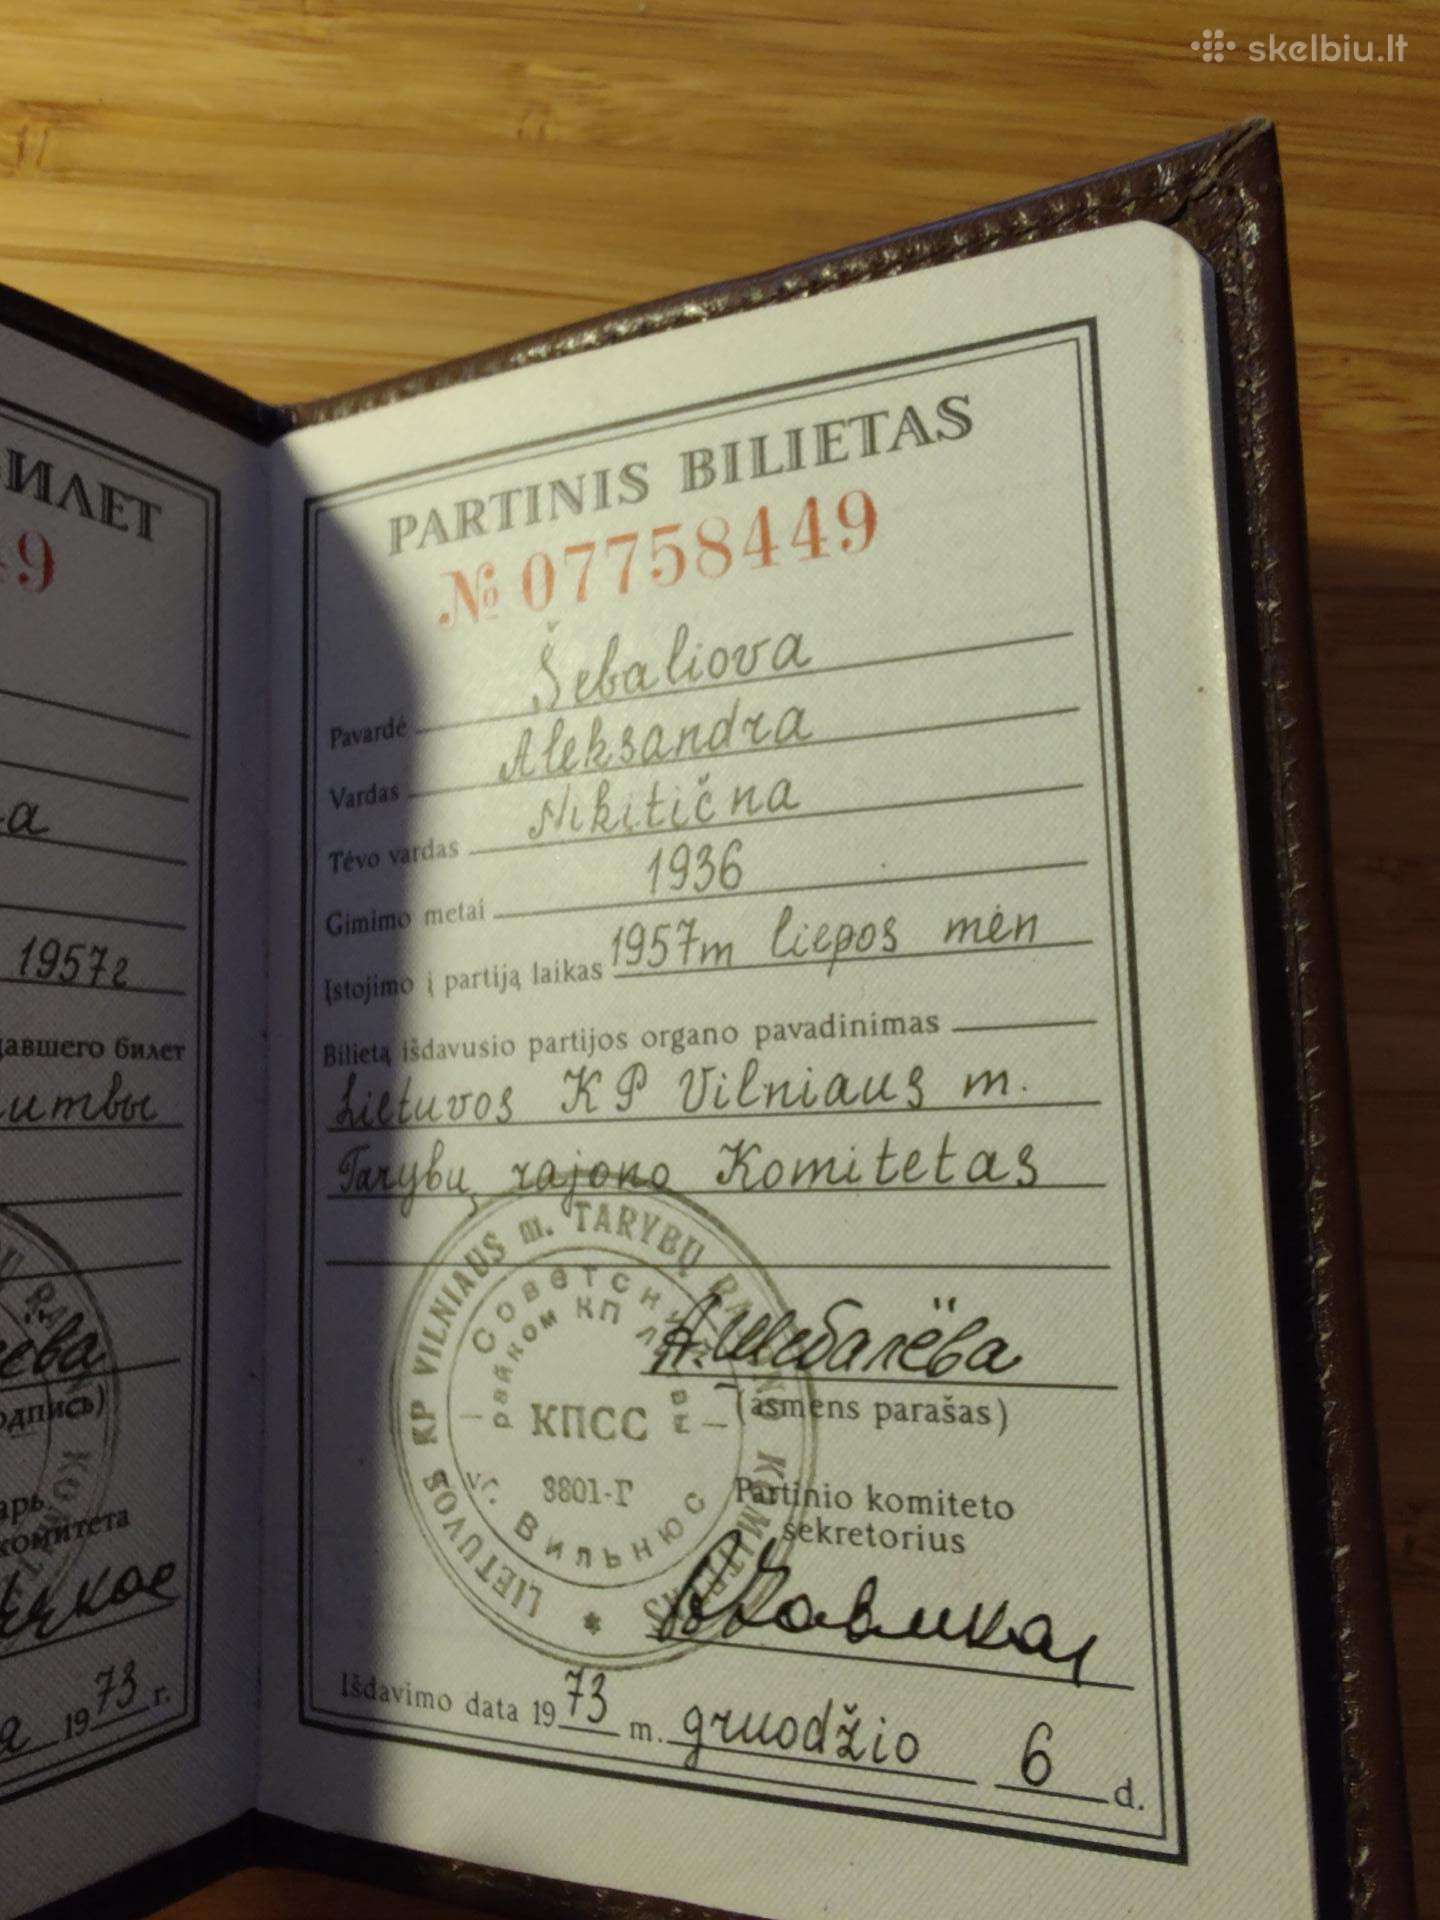 skelbiu.lt
БИЛЕТ
49
а
1957г
давшего билет
Литвы
подпись)
комитета
1973 г.
PARTINIS BILIETAS
№ 07758449
Pavardė Šebaliova
Vardas Aleksandra
Tėvo vardas Nikitična
Gimimo metai 1936
Įstojimo į partiją laikas 1957m liepos mėn
Bilietą išdavusio partijos organo pavadinimas
Lietuvos KP Vilniaus m.
Tarybų rajono Komitetas
LIETUVOS KP VILNIAUS m. TARYBŲ RAJONO KOMITETAS
Советский
райком КП Литвы
КПСС
3801-Г
г. Вильнюс
А.Шебалёва
(asmens parašas)
Partinio komiteto
sekretorius
Išdavimo data 1973 m. gruodžio 6 d.